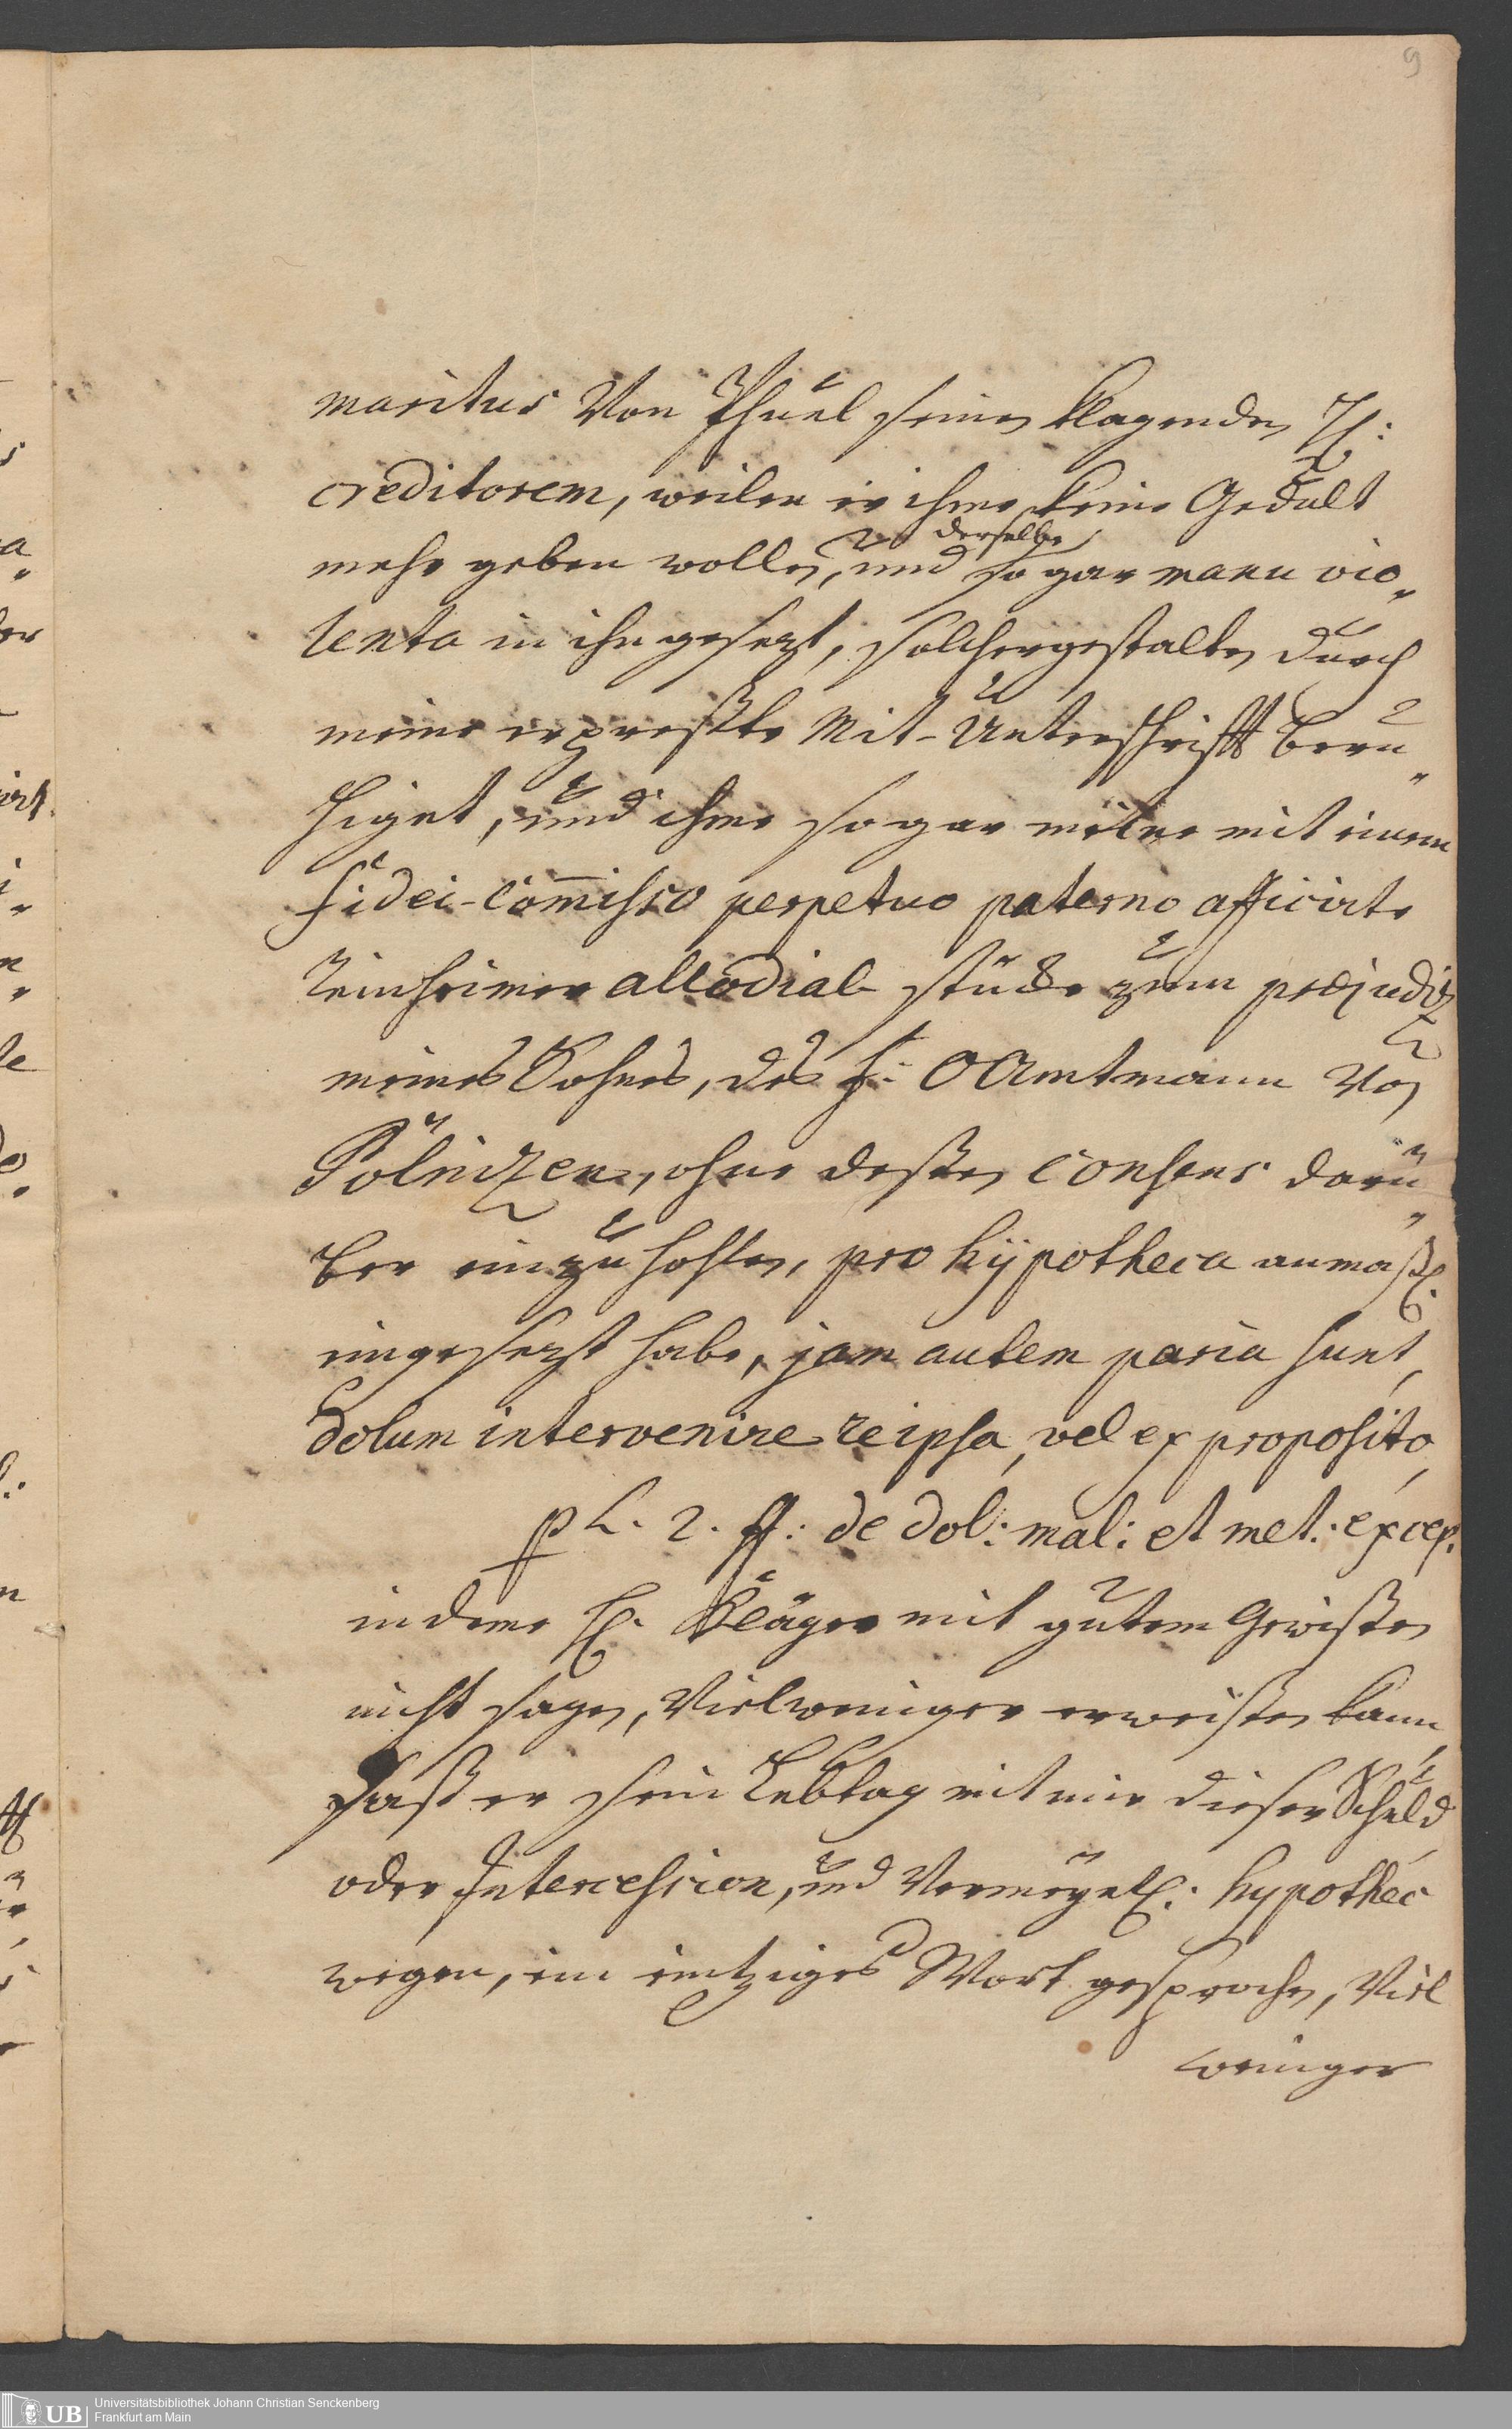 9
maritus Von Phüel seinen klagenden H:
creditorem, weilen er ihme keine Gedult
mehr geben wollen, und derselbe so gar manu vio„
lenta in ihn gesezt, solchergestalten durch
meine erpreßte Mit-Unterschrifft beru„
higet, und ihme so gar meine mit einem
fidei-com̄isso perpetuo paterno afficirte
allodial stücke zum præjudiz
meines Sohnes, des H: OAmtmann Von
Pölnizen, ohne deßen consens darü„
ber einzuhohlen, pro hÿpotheca anmaßl.
eingesezt habe, jam autem paria sunt,
dolum intervenire re ipsa, vel ex proposito,
p L. 2. ff: de dol: mal: et met: excep.
indeme H. Kläger mit gutem Gewißen
nicht sagen, Vielweniger erweißen kann,
daß er sein Lebtag mit mir dieser Schuld,
oder Intercession, und Vermögel: hypothec
wegen, ein eintziges Wort gesprochen, Viel
weniger
UB
Universitätsbibliothek Johann Christian Senckenberg
Frankfurt am Main